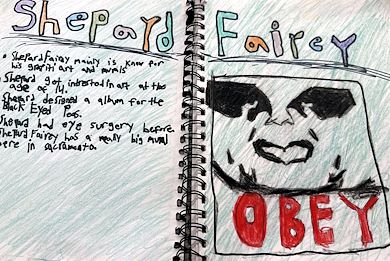 Shepard Fairey
• Shepard Fairey mainly is know for
his graffiti art and murals
Shepard got intrested in art at the
age of 14.
Shepard designed a album for the
Black Eyed Peas.
Shepard had eye surgery before.
Shepard Fairey has a really big mural
here in sacramento
OBEY